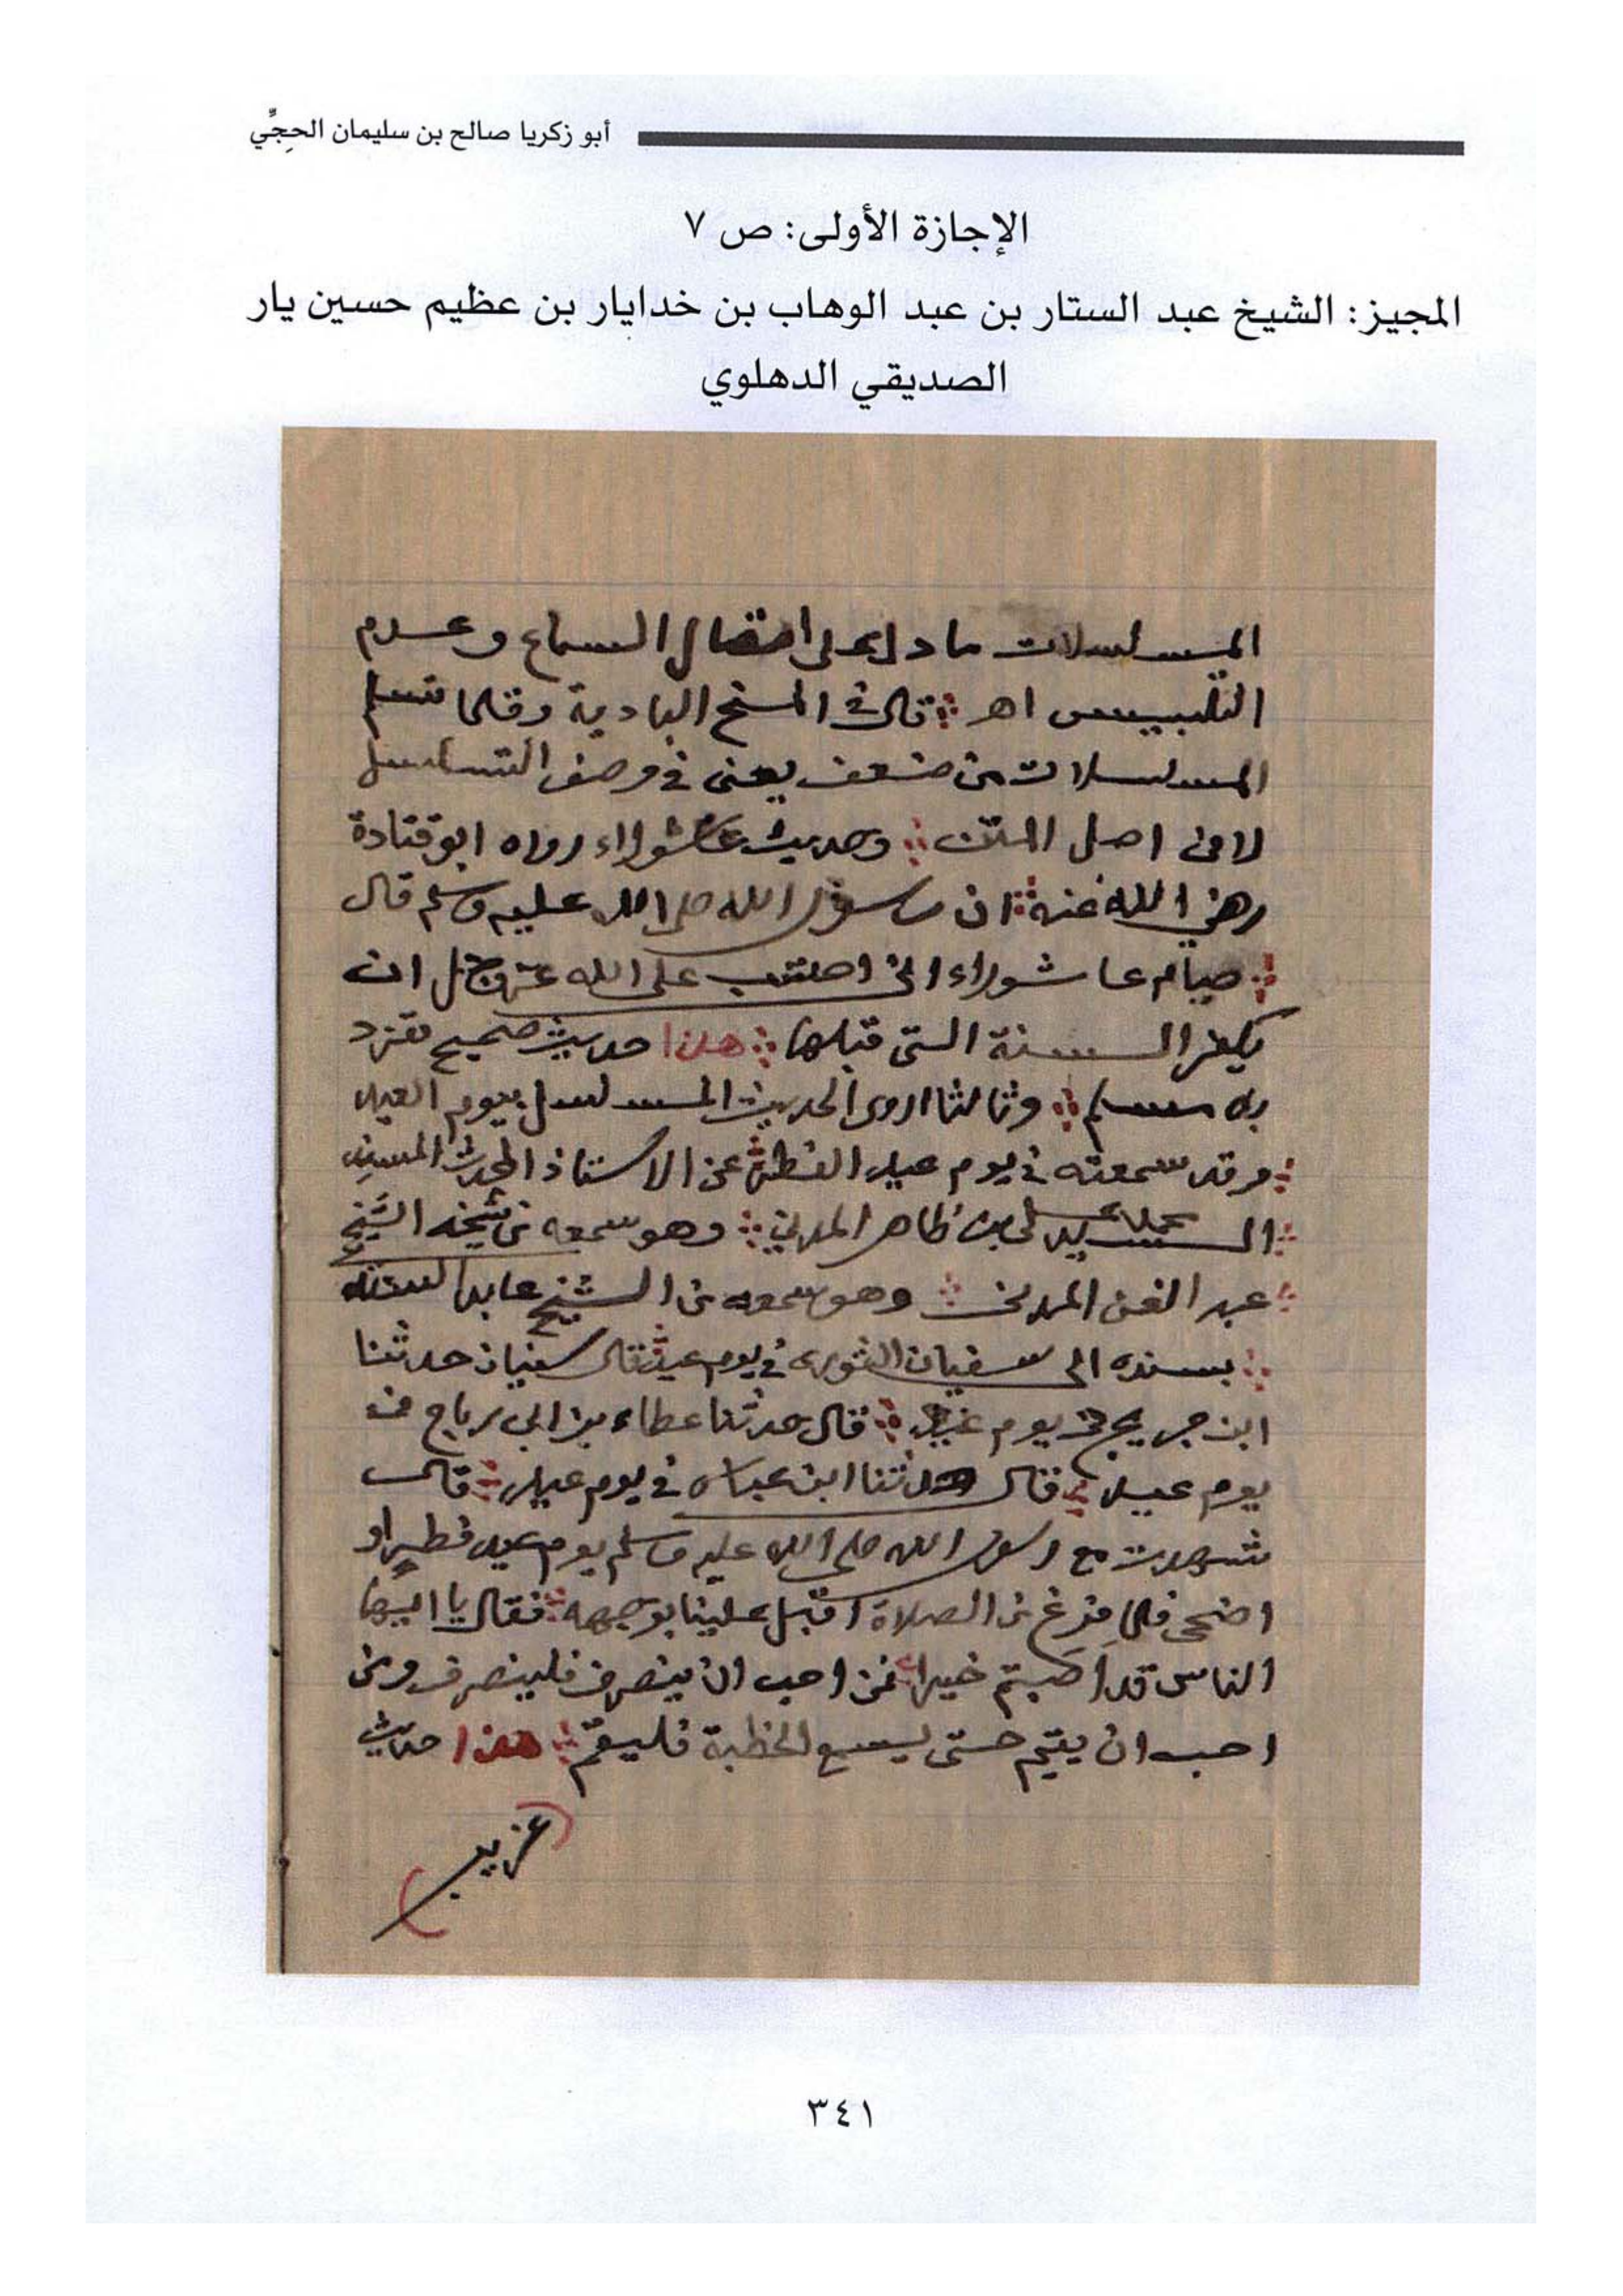 أبو زكريا صالح بن سليمان الحجِّي
الإجازة الأولى: ص ٧
المجيز: الشيخ عبد الستار بن عبد الوهاب بن خدايار بن عظيم حسين يار
الصديقي الدهلوي
المسلسلات ما دل على اتصال السماع وعدم
التلبيس اهـ قال في المنح البادية وقلما تسلم
المسلسلات من ضعف يعنى في وصف التسلسل
لا في اصل المتن وحديث عاشوراء رواه ابو قتادة
رضي الله عنه ان رسول الله صلى الله عليه وسلم قال
صيام عاشوراء انى احتسب على الله عز وجل ان
يكفر السنة التى قبلها هذا حديث صحيح تفرد
به مسلم وثالثا اروى الحديث المسلسل بيوم العيد
وقد سمعته في يوم عيد الفطر عن الاستاذ المحدث المسند
السيد محمد على بن ظاهر المدني وهو سمعه من شيخه الشيخ
عبد الغنى المدنى وهو سمعه من الشيخ عابد السندى
بسنده الى سفيان الثورى في يوم عيد قال سفيان حدثنا
ابن جريج في يوم عيد قال حدثنا عطاء بن ابي رباح في
يوم عيد قال حدثنا ابن عباس في يوم عيد قال
شهدت مع رسول الله صلى الله عليه وسلم يوم عيد فطر او
اضحى فلما فرغ من الصلاة اقبل علينا بوجهه فقال يا ايها
الناس قد اصبتم خيرا فمن احب ان ينصرف فلينصرف ومن
احب ان يقيم حتى يسمع الخطبة فليقم هذا حديث
(غريب)
٣٤١